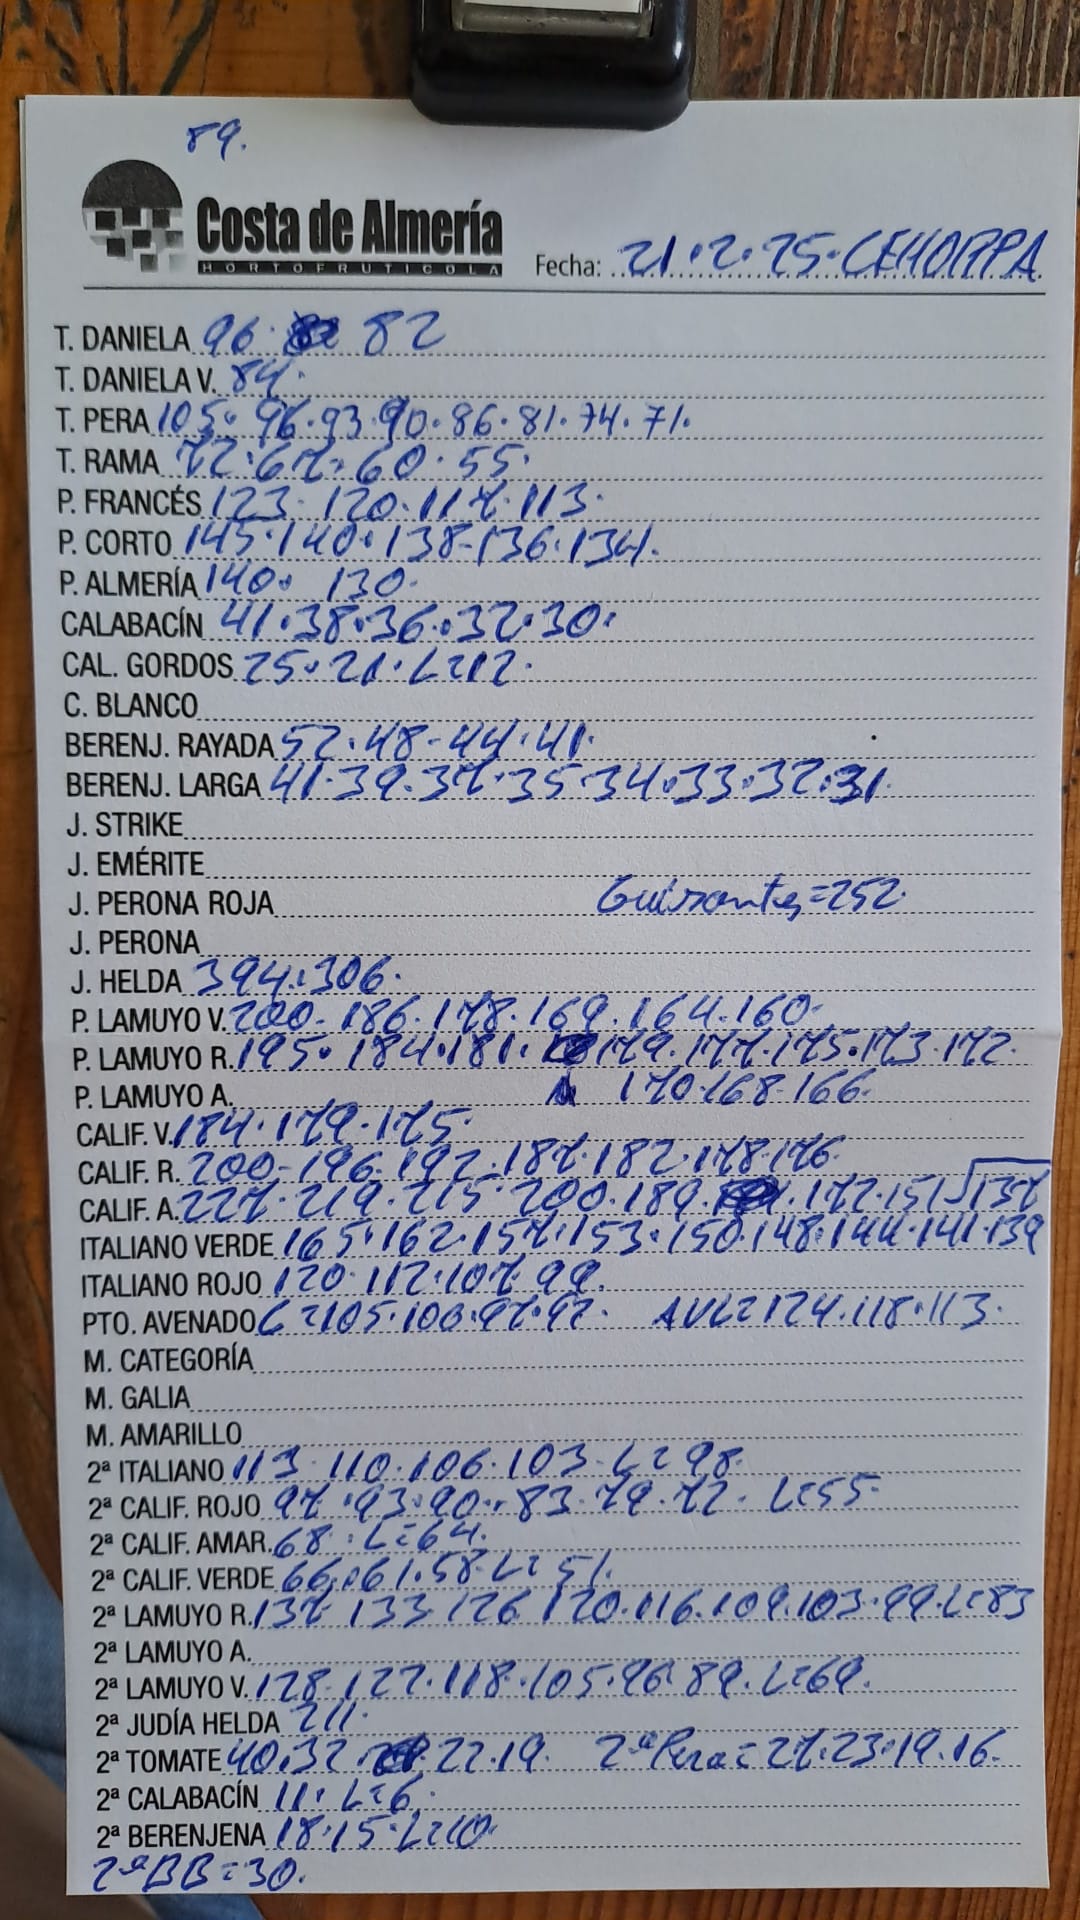 89.
Costa de Almería
HORTOFRUTICOLA
Fecha: 21.2.25.CEHORPA
T. DANIELA 96. 82
T. DANIELA V. 84.
T. PERA 105. 96.93.90.86.81.74.71.
T. RAMA 72.67.60.55.
P. FRANCÉS 123.120.117.113.
P. CORTO 145.140.138-136.134.
P. ALMERÍA 140. 130.
CALABACÍN 41.38.36.32.30.
CAL. GORDOS 25.21.L=12.
C. BLANCO
BERENJ. RAYADA 52.48-44.41.
BERENJ. LARGA 41.39.37.35.34.33.32.31.
J. STRIKE
J. EMÉRITE
J. PERONA ROJA Guisantes=252.
J. PERONA
J. HELDA 394.306.
P. LAMUYO V. 200-186.178.169.164.160.
P. LAMUYO R. 195.184.181.179.177.175.173.172.
P. LAMUYO A. 170.168.166.
CALIF. V. 184.179.175.
CALIF. R. 200-196.192.187.182.178.176
CALIF. A. 227.219.215.200.189.172.151 137
ITALIANO VERDE 165.162.157.153.150.148.144.141.139
ITALIANO ROJO 120.112.107.99.
PTO. AVENADO C=105.100.97.92. AVL=124.118.113.
M. CATEGORÍA
M. GALIA
M. AMARILLO
2ª ITALIANO 113.110.106.103.L=98.
2ª CALIF. ROJO 97.93.90.83.79.72. L=55.
2ª CALIF. AMAR. 68.L=64.
2ª CALIF. VERDE 66.61.58.L=51.
2ª LAMUYO R. 137 133 126 120.116.109.103.99.L=83
2ª LAMUYO A.
2ª LAMUYO V. 128.122.118.105.96.89.L=69.
2ª JUDÍA HELDA 211.
2ª TOMATE 40.32. 22.19. 2ªPera=27.23.19.16.
2ª CALABACÍN 11.L=6.
2ª BERENJENA 18.15.L=10.
2ªBB=30.